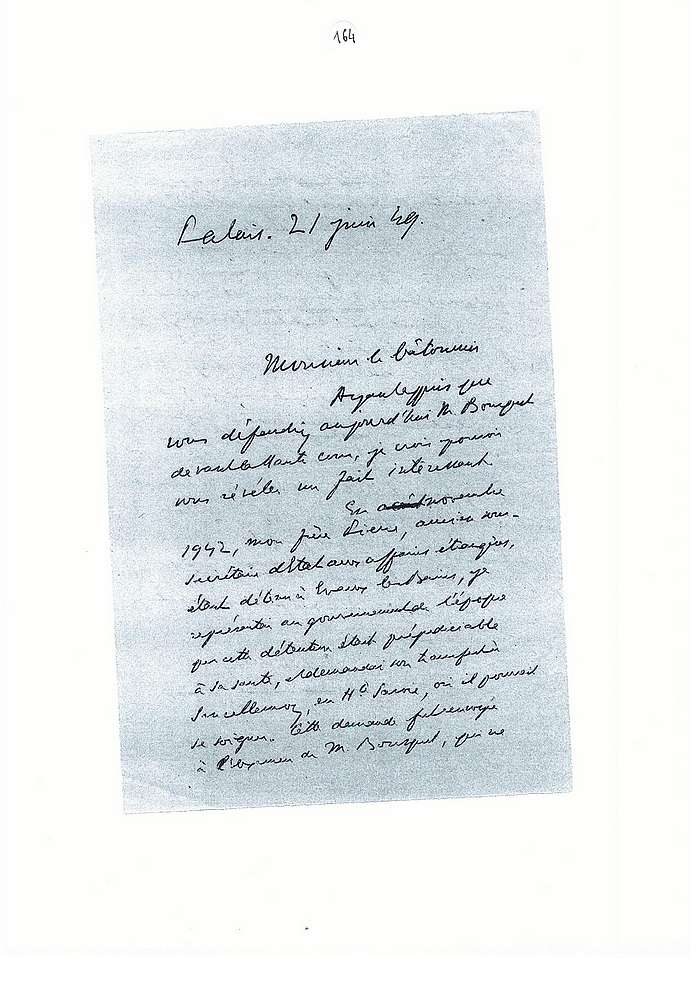 164
Palais. 21 juin 49.
Monsieur le bâtonnier
Ayant appris que
vous défendiez aujourd'hui M. Bousquet
devant la Haute cour, je crois pouvoir
vous révéler un fait intéressant.
En novembre
1942, mon frère Pierre, ancien sous-
secrétaire d'Etat aux affaires étrangères,
étant détenu à Evaux les Bains, je
représentai au gouvernement de l'époque
que cette détention était préjudiciable
à sa santé, et demandai son transfert à
en Hte Savoie, où il pouvait
se soigner. Cette demande fut renvoyée
à l'examen de M. Bousquet, qui ne